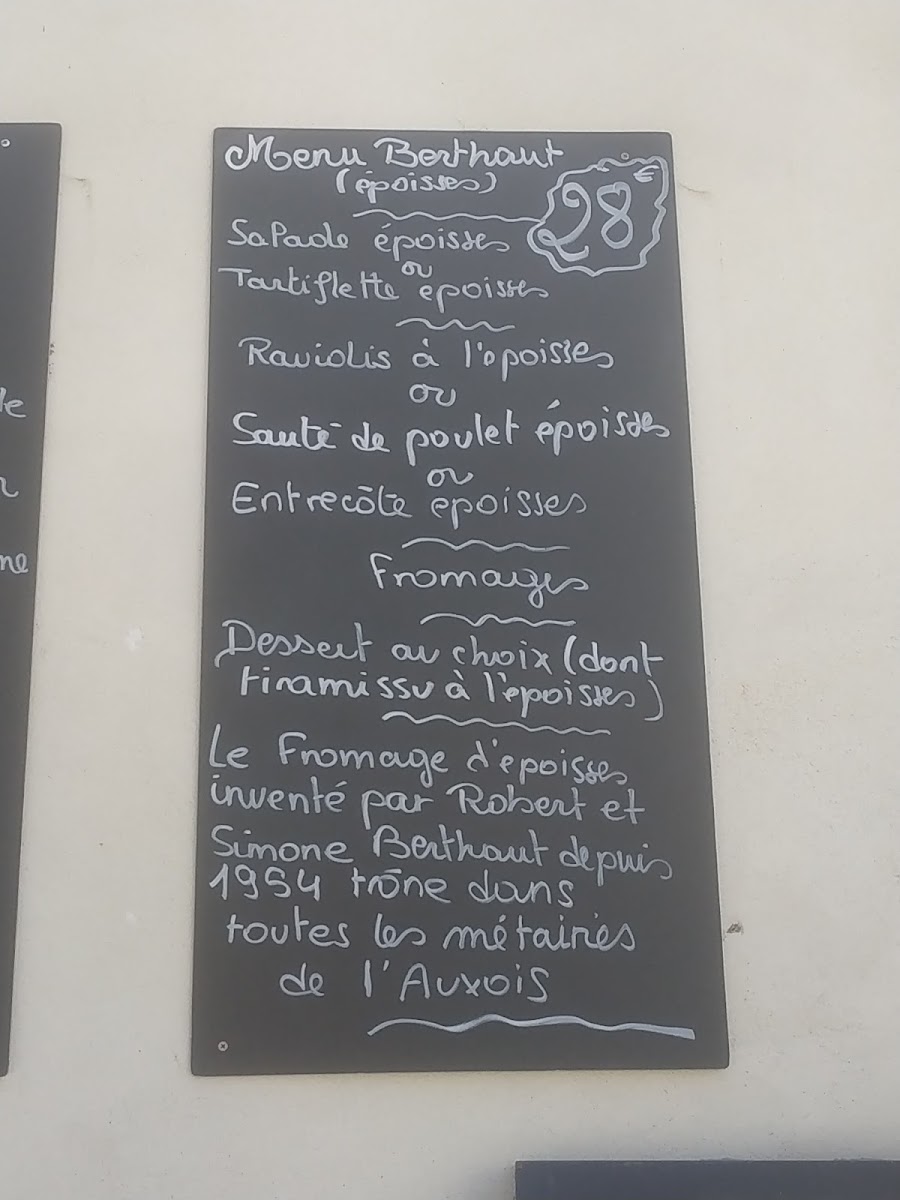 Menu Berthaut
(époisses)
28€
Salade époisses
ou
Tartiflette époisses
Raviolis à l'époisses
ou
Sauté de poulet époisses
ou
Entrecôte époisses
Fromages
Dessert au choix (dont
tiramissu à l'époisses)
Le Fromage d'époisses
inventé par Robert et
Simone Berthaut depuis
1954 trône dans
toutes les métairies
de l'Auxois